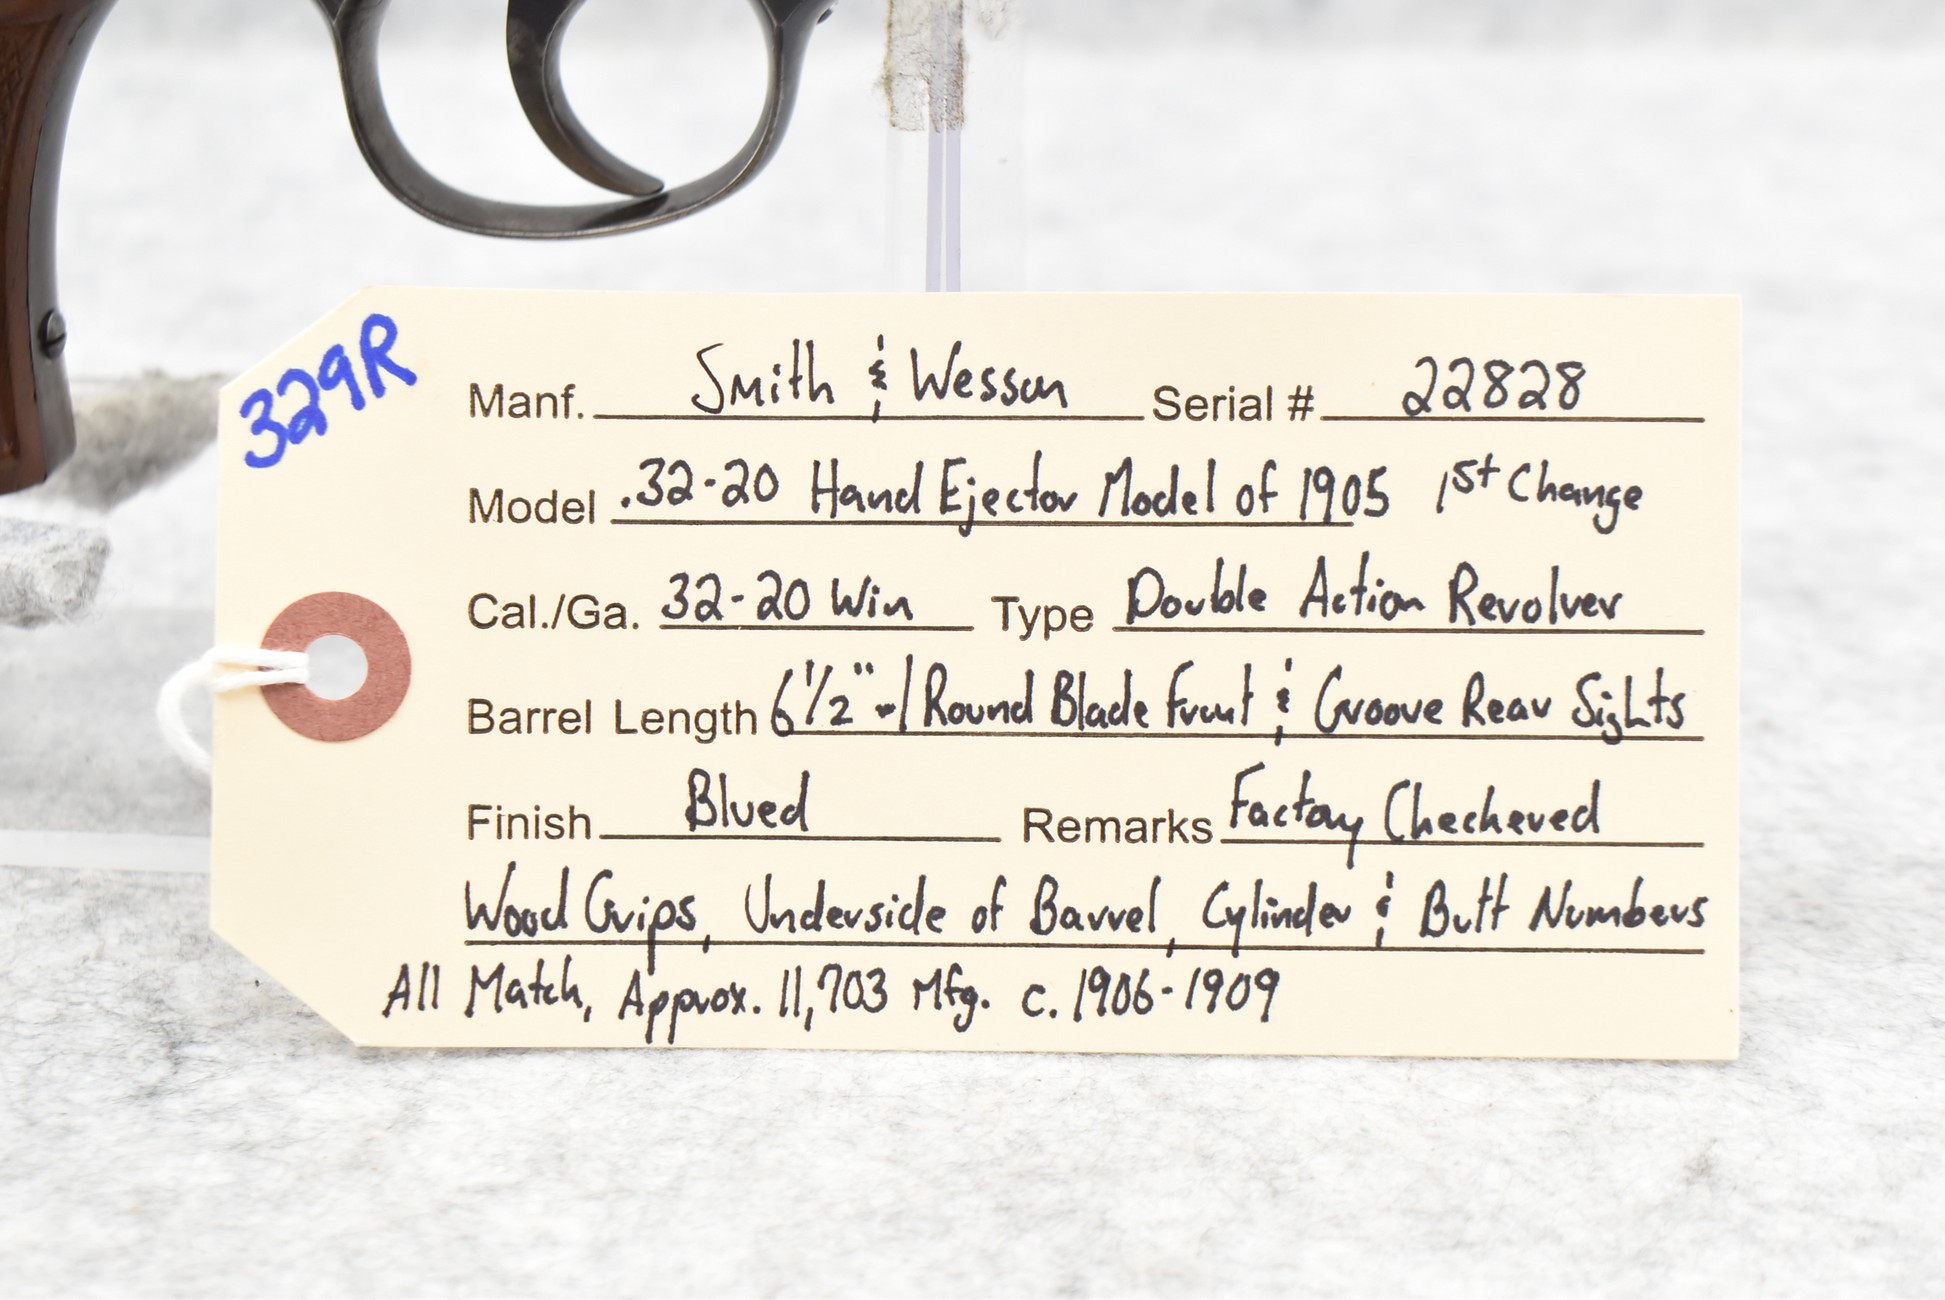 329R
Manf. Smith & Wesson Serial # 22828
Model .32-20 Hand Ejector Model of 1905 1st Change
Cal./Ga. 32-20 Win Type Double Action Revolver
Barrel Length 6 1/2" w/ Round Blade Front & Groove Rear Sights
Finish Blued Remarks Factory Checkered
Wood Grips, Underside of Barrel, Cylinder & Butt Numbers
All Match, Approx. 11,703 Mfg. c. 1906-1909